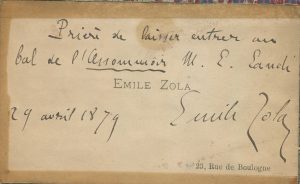 Prière de laisser entrer au
bal de l'Assommoir M. E. Landi
EMILE ZOLA
29 avril 1879 Emile Zola
23, Rue de Boulogne